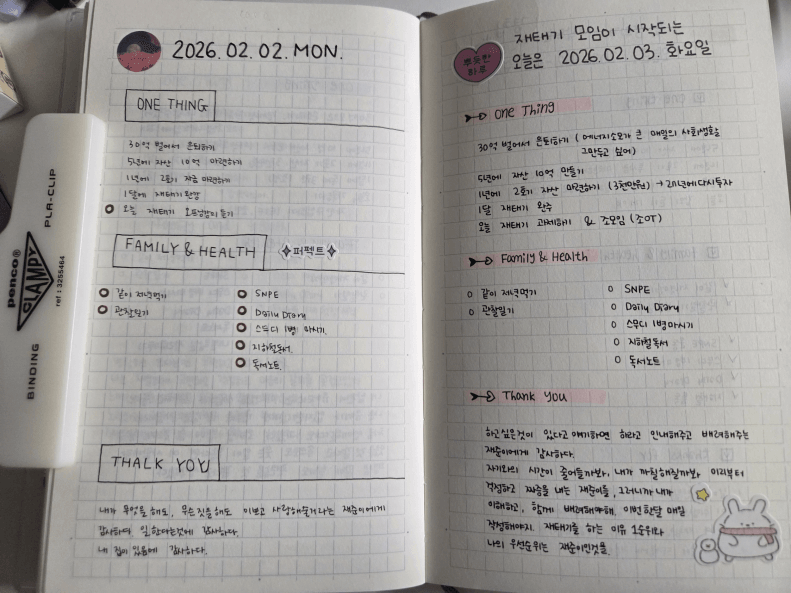 2026.02.02.MON.
ONE THING
30억 벌어서 은퇴하기
5년에 자산 10억 마련하기
1년에 2호기 자금 마련하기
1달에 재태기 완강
오늘 재태기 오프닝강의 듣기
FAMILY & HEALTH
퍼펙트
같이 저녁먹기
관찰일기
SNPE
Daily Diary
스무디 1병 마시기.
지하철독서.
독서노트.
THALK YOU
내가 무엇을 해도, 무슨 것을 해도 이쁘고 사랑해줄거라는 재준이에게
감사하며, 일한다는것에 감사하다.
내 집이 있음에 감사하다.
penco®
CLAMPY
PLA-CLIP
ref : 3255464
BINDING
뿌듯한
하루
재태기 모임이 시작되는
오늘은 2026.02.03. 화요일
One Thing
30억 벌어서 은퇴하기 (에너지소모가 큰 매일의 사회생활
그만두고 싶어)
5년에 자산 10억 만들기
1년에 2호기 자산 마련하기 (3천만원) → 21년에다시투자
1달 재태기 완주
오늘 재태기 과제하기 & 조모임 (조OT)
Family & Health
같이 저녁먹기
관찰일기
SNPE
Daily Diary
스무디 1병마시기
지하철독서
독서노트
Thank You
하고싶은것이 있다고 얘기하면 하라고 인내해주고 배려해주는
재준이에게 감사하다.
자기와의 시간이 줄어들까봐, 내가 까칠해질까봐 미리부터
걱정하고 짜증을 내는 재준이를, 그러니까 내가
이해하고, 함께 배려해야해. 이번 한달 매일
걱정해야지. 재태기를 하는 이유 1순위와
나의 우선순위는 재준이인것을.